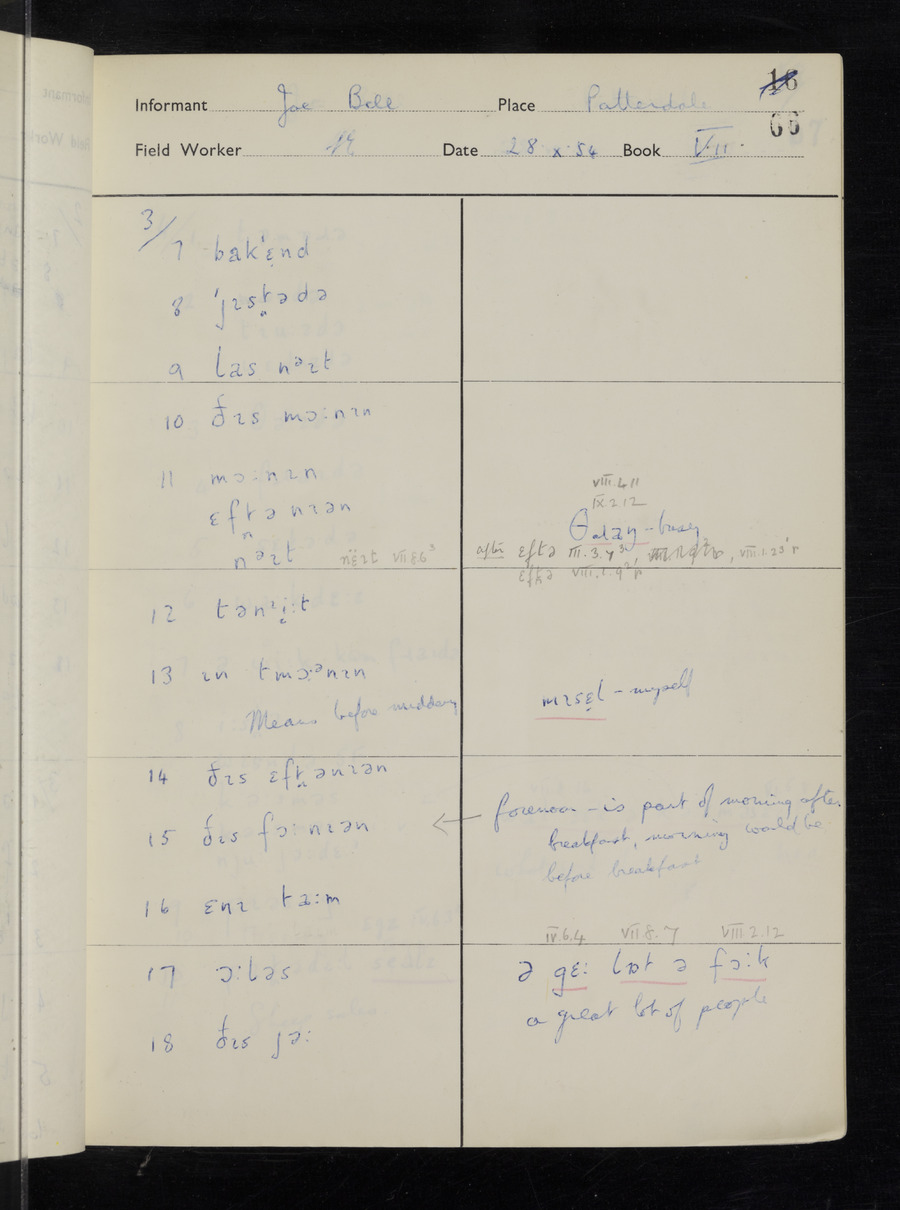 Informant Joe Bell Place Patterdale
66
Field Worker Date 28 x 54 Book VII
3/
7 bak'ɛnd
8 'jɪstədə
9 las nəɪt
10 ðɪs mɔ:nɪn
11 mɔ:nɪn
ɛftənɪən
nəɪt nëɪt VII.8.6³
VIII.4.11
IX.2.12
after ɛftə III.3.7³, VIII.1.23'r
ɛftə VIII.1.9²'r
12 tənɪi:t
13 ɪn tmɔ:ənɪn
Means before midday
mɪsɛl - myself
14 ðɪs ɛftənɪən
15 ðɪs fɔ:nɪən
forenoon - is part of morning after
breakfast, morning would be
before breakfast
16 ɛnɪ ta:m
IV.6.4 VII.8.7 VIII.2.12
17 ɔ:ləs
ə gɛ: lɒt ə fɔ:k
a great lot of people
18 ðɪs jə: